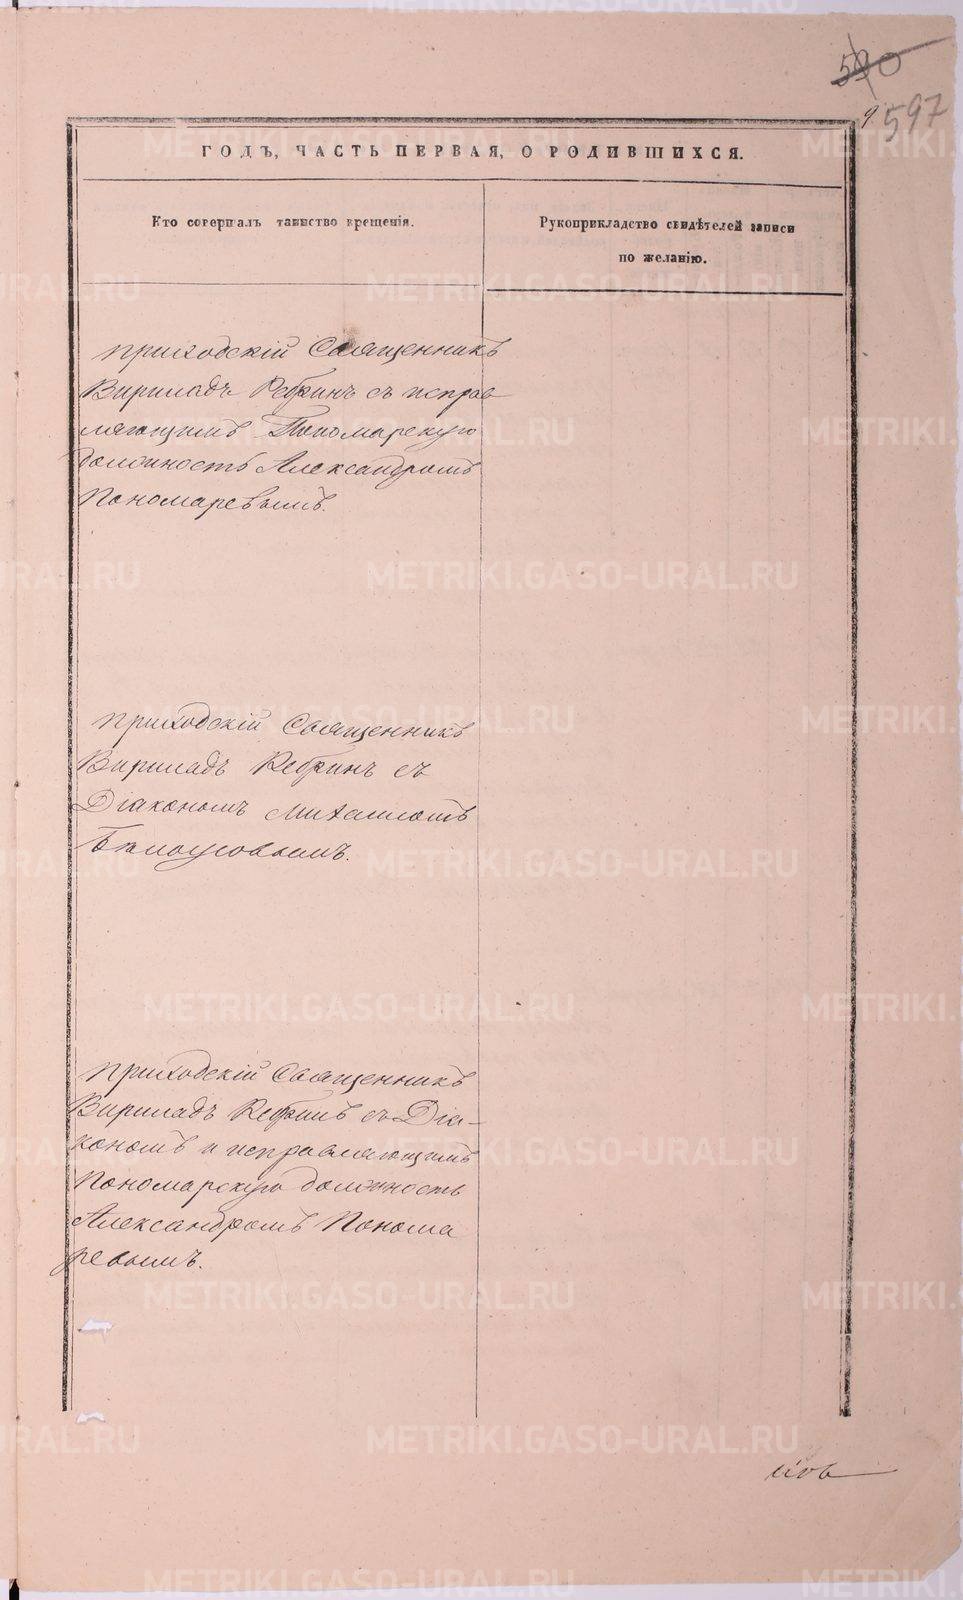 590
9
597
ГОДЪ, ЧАСТЬ ПЕРВАЯ, О РОДИВШИХСЯ.
Кто совершалъ таинство крещенія.
Рукоприкладство свидѣтелей записи
по желанію.
Приходскій Священникъ
Вириладъ Ребринъ съ исправ
ляющимъ Пономарскую
должность Александромъ
Пономаревымъ.
Приходскій Священникъ
Вириладъ Ребринъ съ
Діакономъ Михаиломъ
Бѣлоусовымъ.
Приходскій Священникъ
Вириладъ Ребринъ съ Діа-
кономъ и исправляющимъ
Пономарскую должность
Александромъ Понома
ревымъ.
METRIKI.GASO-URAL.RU